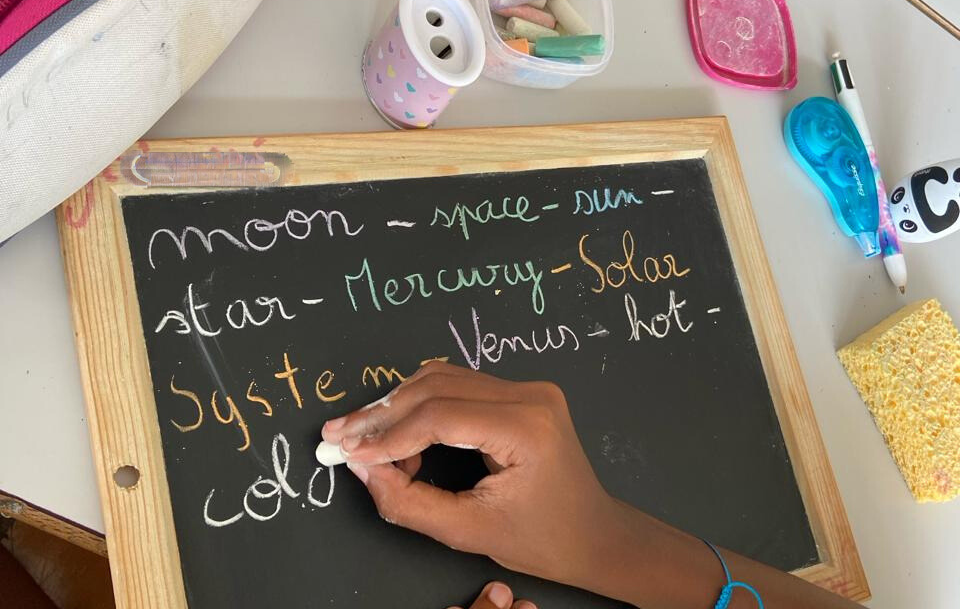 moon - space - sun -
star - Mercury - Solar
System - Venus - hot -
cold